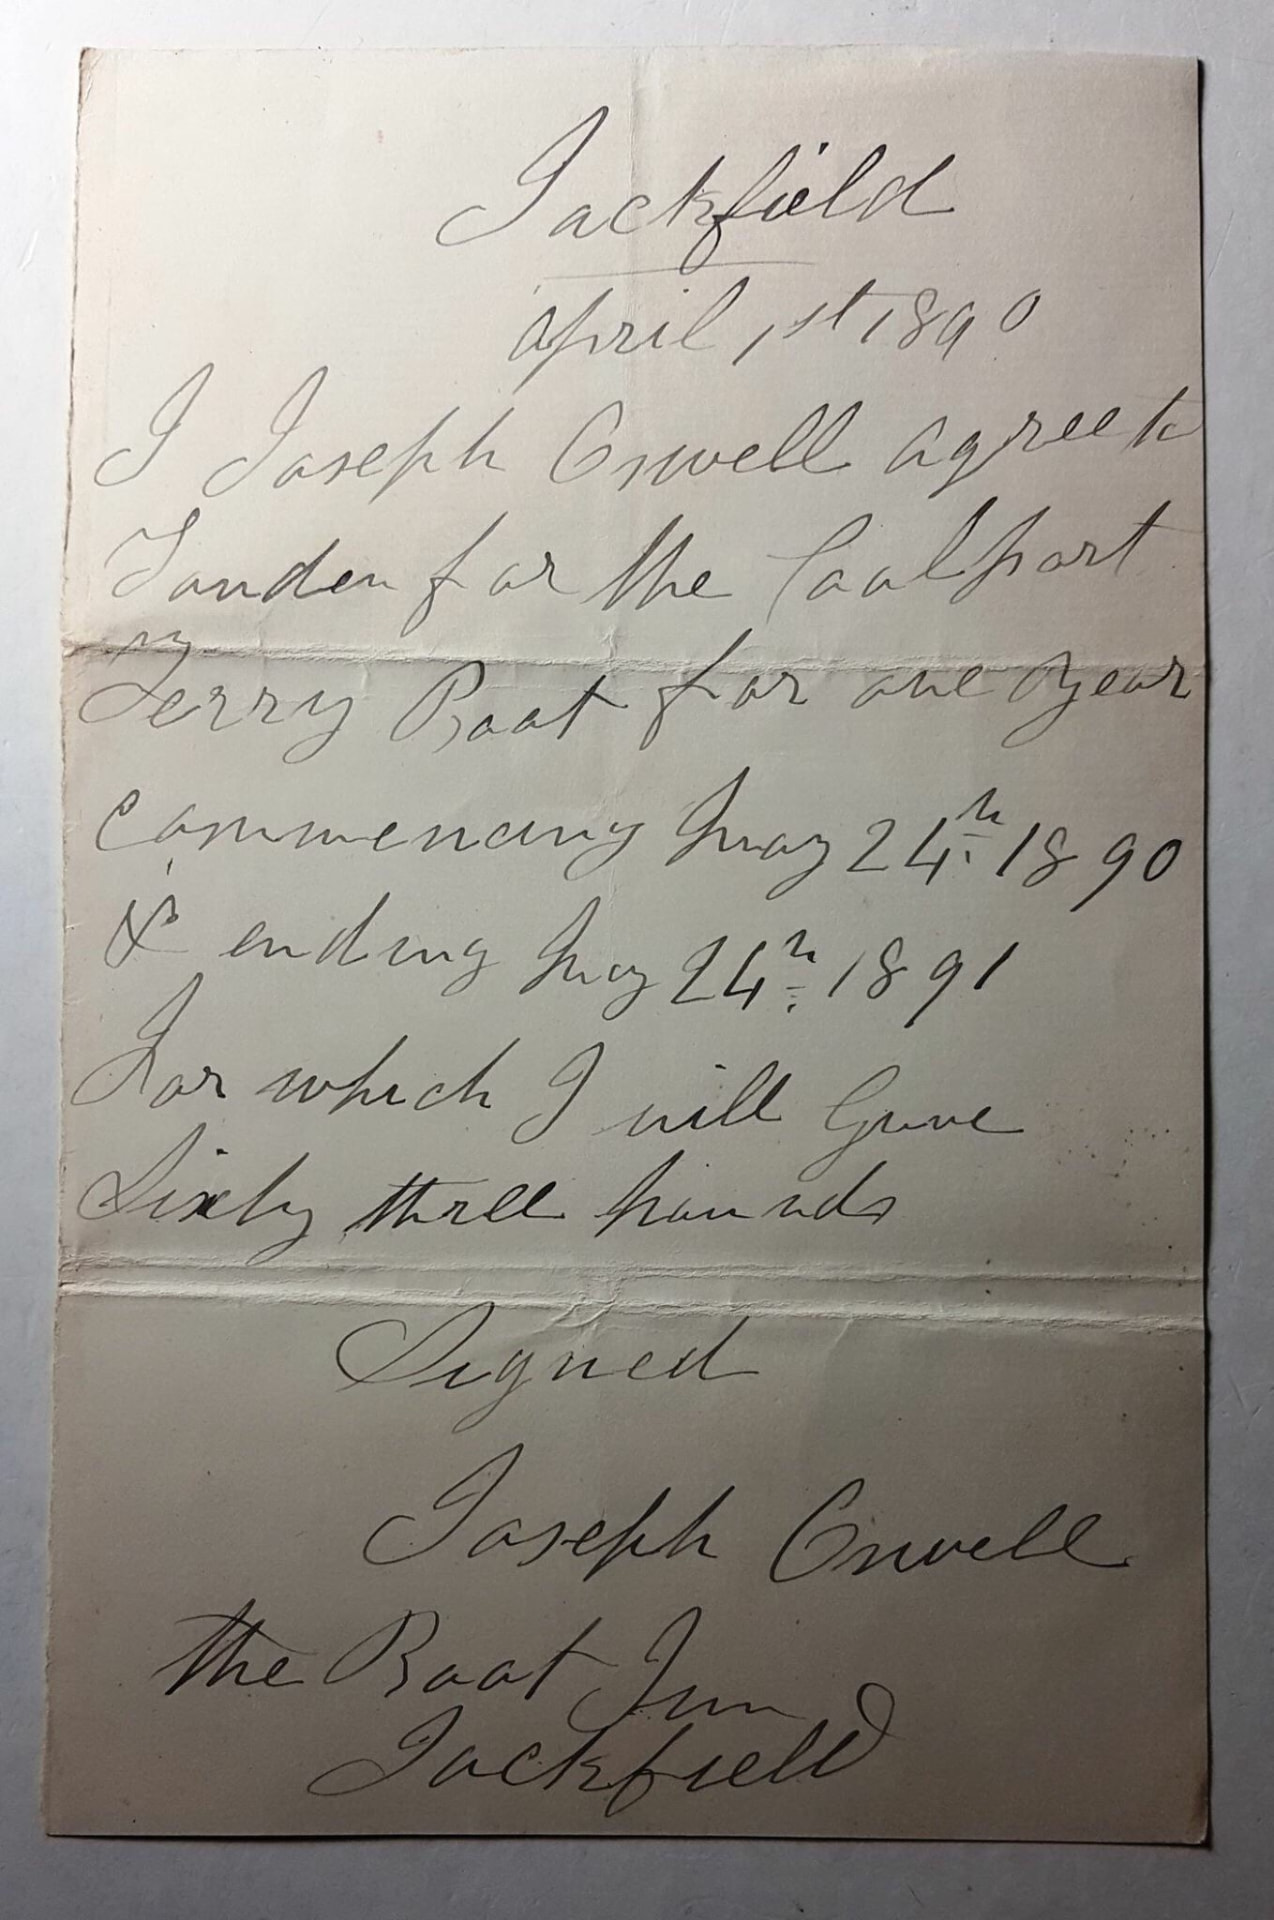 Jackfield
April 1st 1890
I Joseph Oswell agree to
Tender for the Coalport
Ferry Boat for one year
commencing May 24th 1890
& ending May 24th 1891
For which I will Give
Sixty three pounds
Signed
Joseph Oswell
the Boat Inn
Jackfield